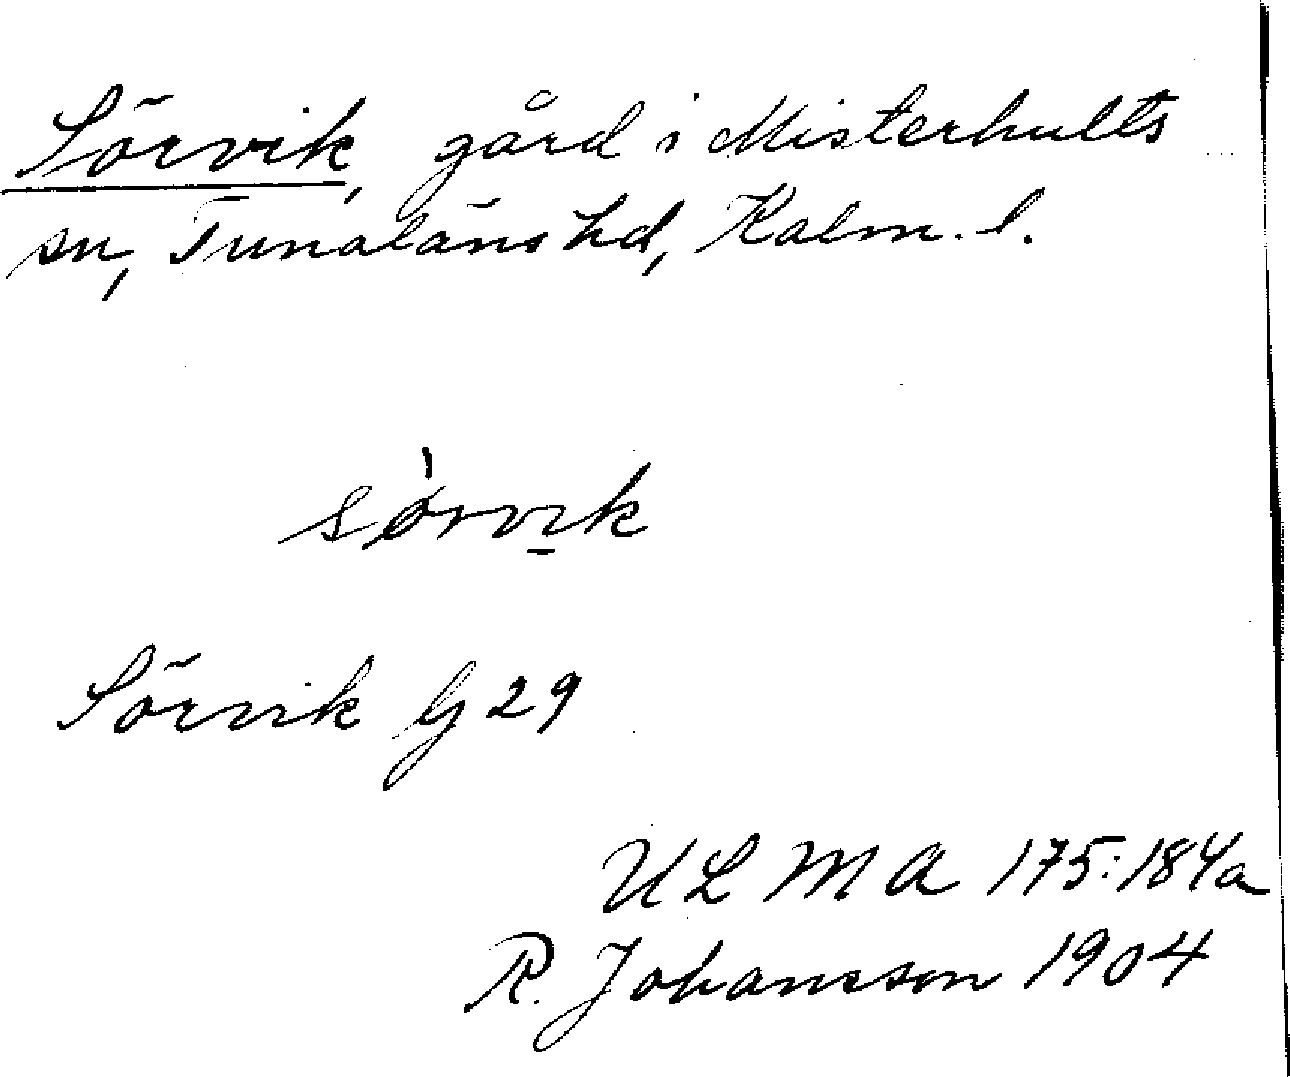 Sörvik, gård i Misterhults
sn, Tunaläns hd, Kalm. l.
sørvik
Sörvik G 29
ULMA 175:184a
R. Johansson 1904